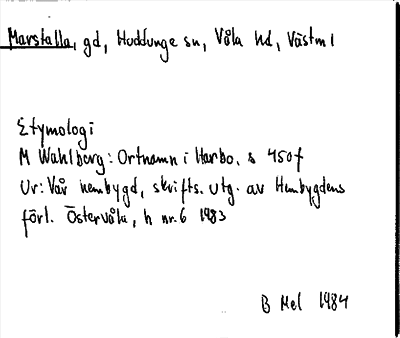 Marstalla, gd, Huddunge sn, Våla hd, Västm l
Etymologi
M Wahlberg: Ortnamn i Harbo, s 450f
Ur: Vår hembygd, skrifts. utg. av Hembygdens
förl. Östervåla, h nr. 6 1983
B Mel 1984